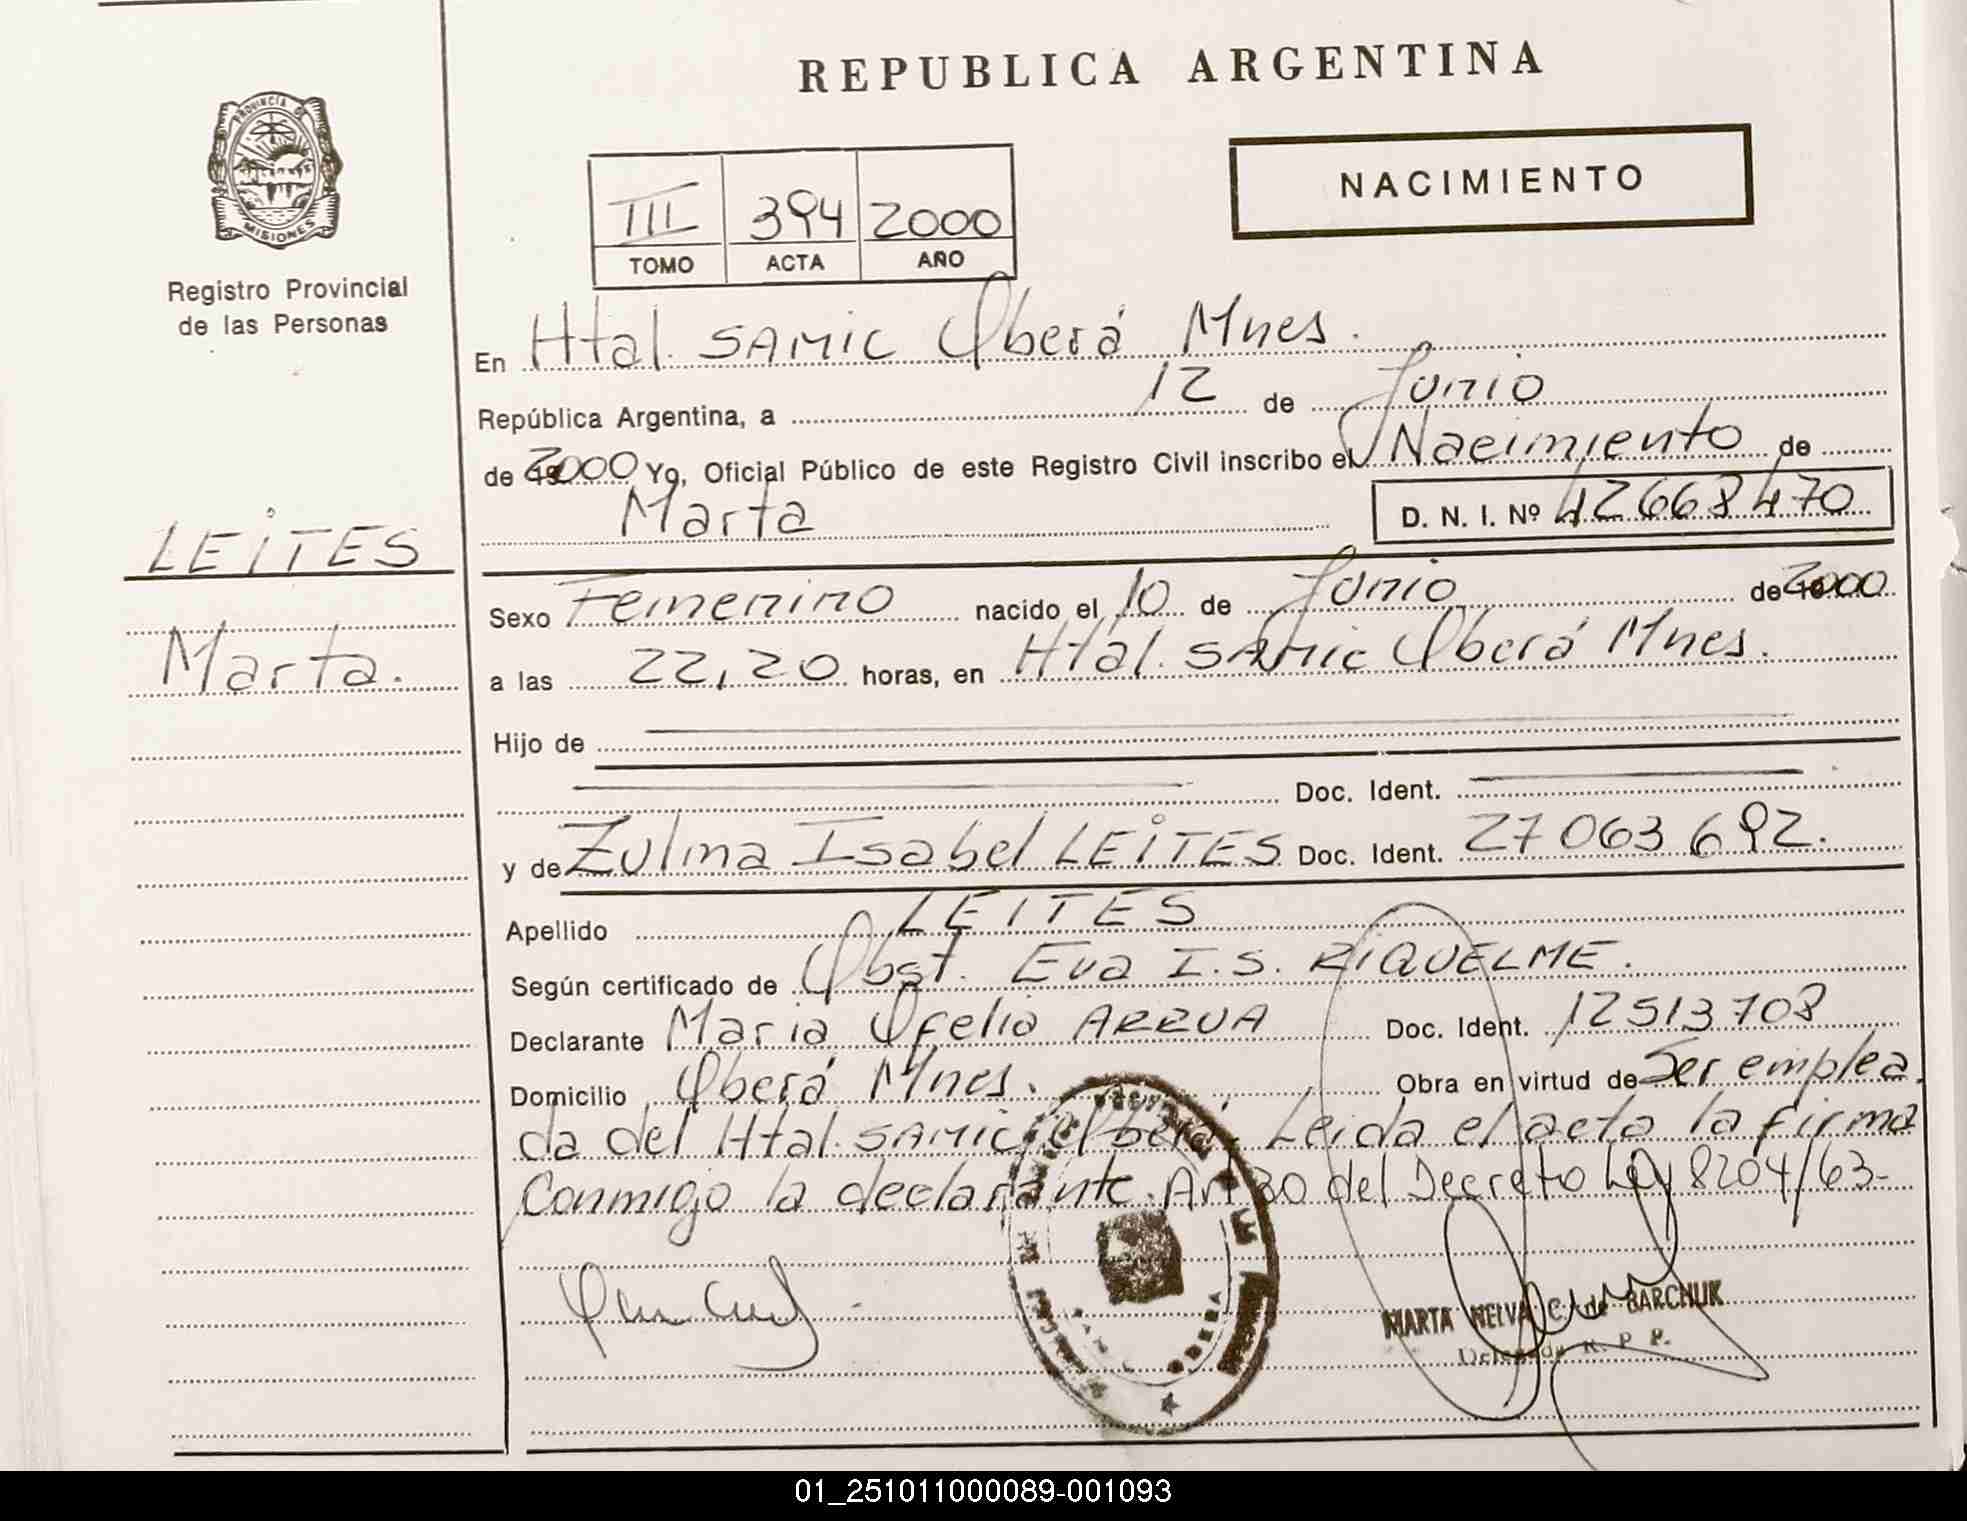 REPUBLICA ARGENTINA
PROVINCIA DE
MISIONES
Registro Provincial
de las Personas
NACIMIENTO
III 394 2000
TOMO ACTA AÑO
En Htal. SAMIC Oberá Mnes.
República Argentina, a 12 de Junio
de 2000 Yo, Oficial Público de este Registro Civil inscribo el Nacimiento de
Marta D. N. I. Nº 42668470
LEITES
Marta.
Sexo Femenino nacido el 10 de Junio de 2000
a las 22,20 horas, en Htal. SAMIC Oberá Mnes.
Hijo de
Doc. Ident.
y de Zulma Isabel LEITES Doc. Ident. 27 063 692.
Apellido LEITES
Según certificado de Obst. Eva I.S. RIQUELME.
Declarante Maria Ofelia ARRUA Doc. Ident. 12513708
Domicilio Oberá Mnes. Obra en virtud de Ser emplea
da del Htal. SAMIC Oberá. Leida el acta la firma
Conmigo la declarante. Art 30 del Decreto Ley 8204/63-
MARTA NELVA C. de BARCHUK
Delegada R. P. P.
OBERA
01_251011000089-001093